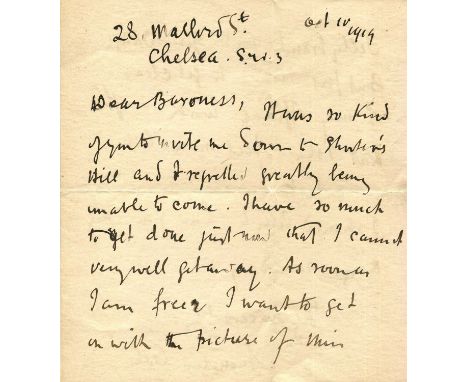 28. Mallord St. Oct 10 1919
Chelsea. S.W.3
Dear Baroness,
It was so kind
of you to invite me down to Shooter's
Hill and I regretted greatly being
unable to come. I have so much
to get done just now that I cannot
very well get away. As soon as
I am free I want to get
on with the picture of